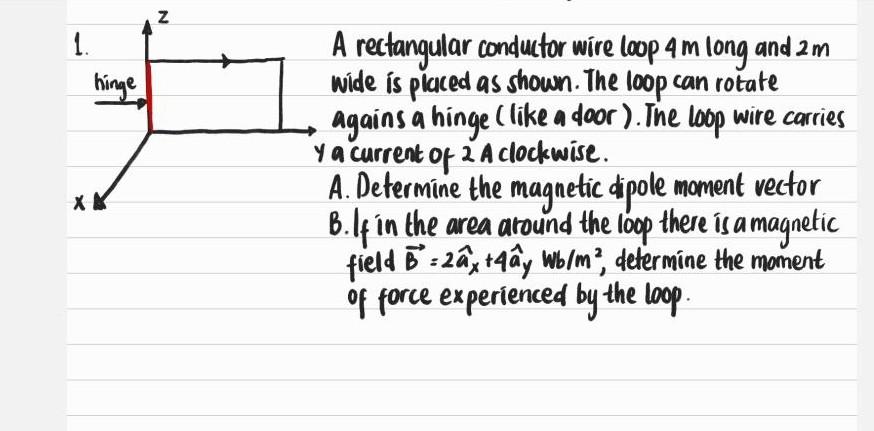 Z
1.
hinge
A rectangular conductor wire loop 4 m long and 2 m
wide is placed as shown. The loop can rotate
agains a hinge (like a door). The loop wire carries
Y a current of 2 A clockwise.
X
A. Determine the magnetic dipole moment vector
B. If in the area around the loop there is a magnetic
field B⃗ = 2âx + 4ây Wb/m², determine the moment
of force experienced by the loop.